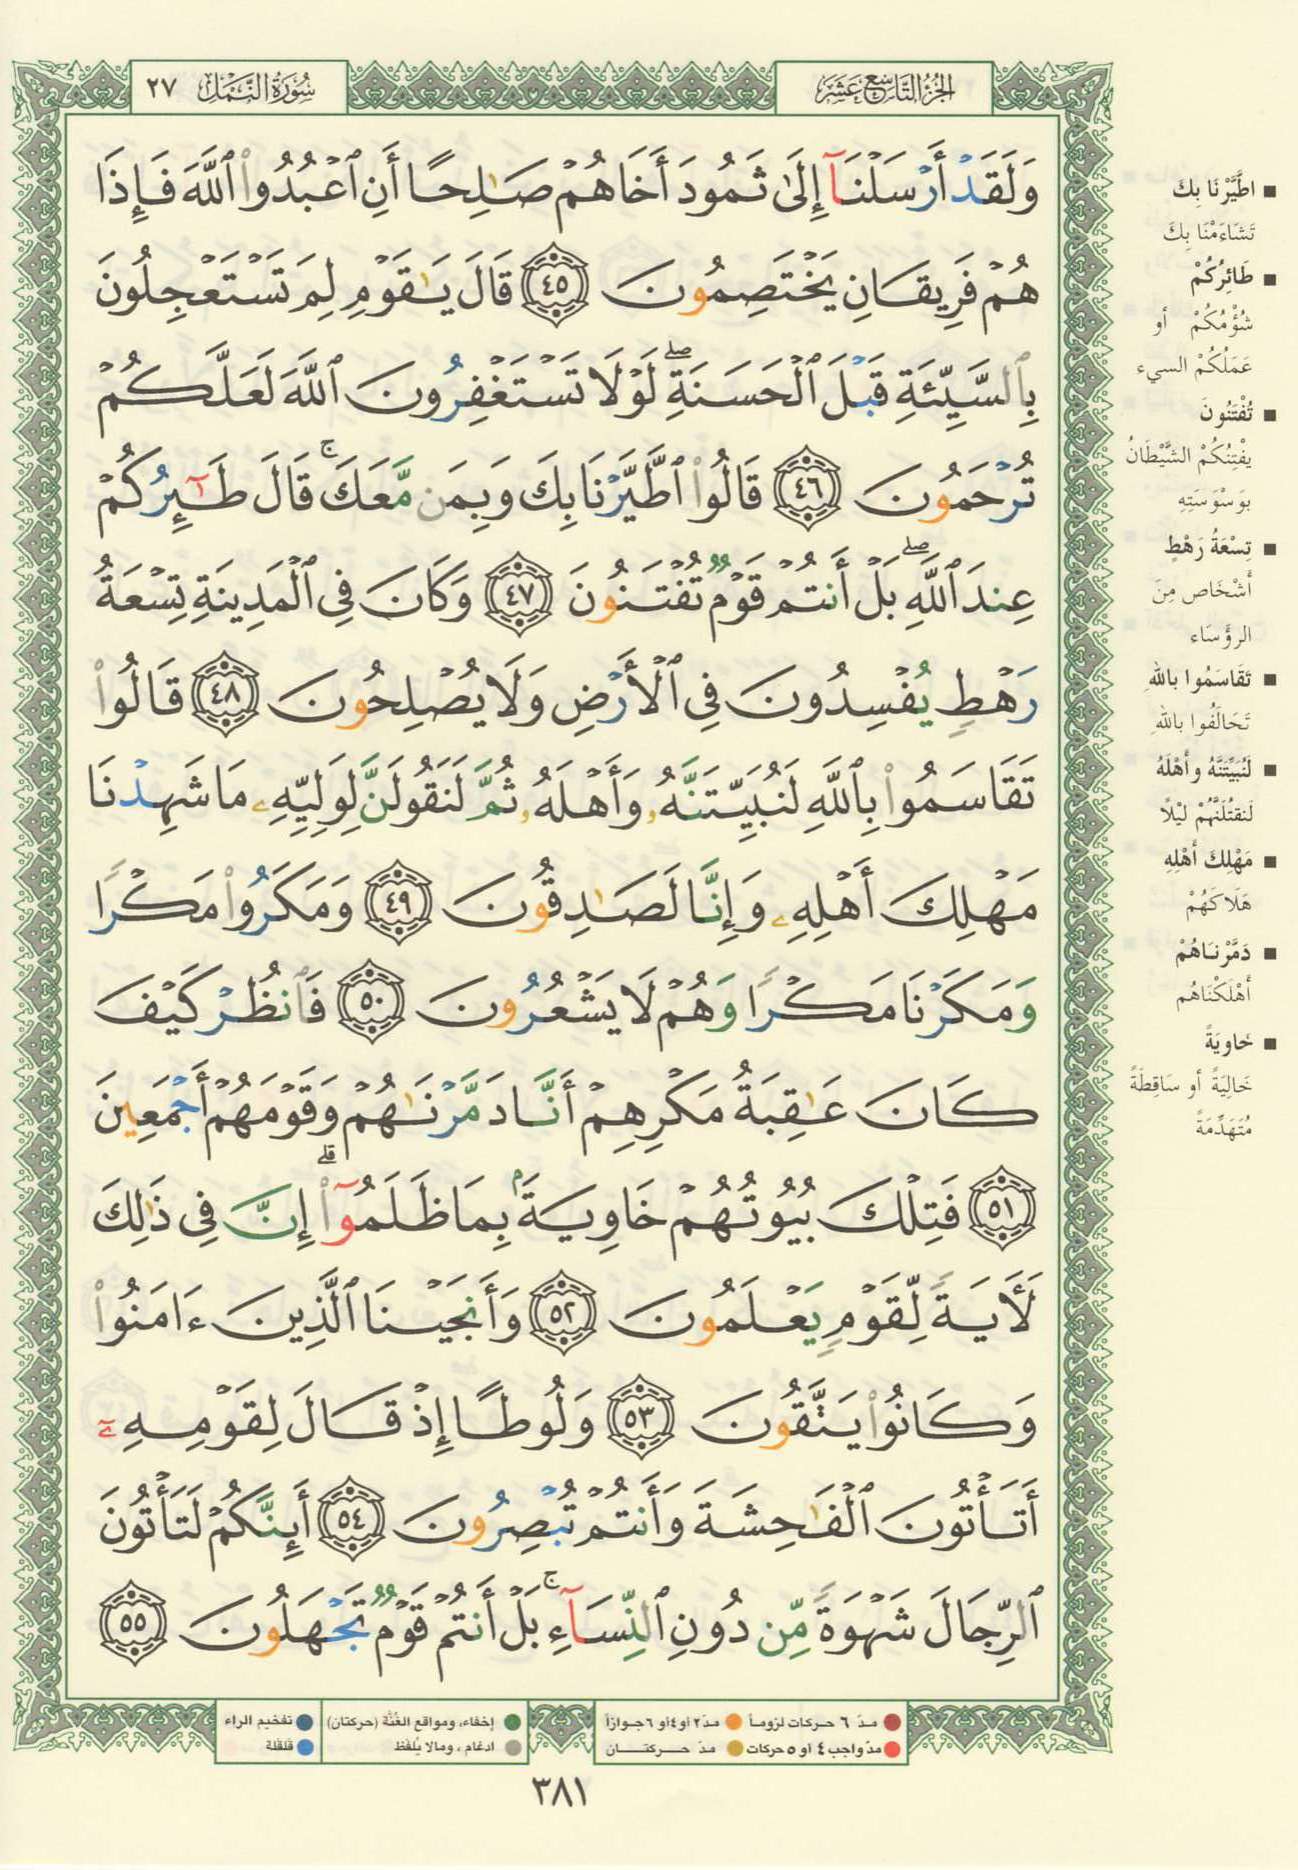 الجزء التاسع عشر
سورة النمل ٢٧
وَلَقَدْ أَرْسَلْنَآ إِلَىٰ ثَمُودَ أَخَاهُمْ صَـٰلِحًا أَنِ ٱعْبُدُوا۟ ٱللَّهَ فَإِذَا
هُمْ فَرِيقَانِ يَخْتَصِمُونَ ٤٥ قَالَ يَـٰقَوْمِ لِمَ تَسْتَعْجِلُونَ
بِٱلسَّيِّئَةِ قَبْلَ ٱلْحَسَنَةِ ۖ لَوْلَا تَسْتَغْفِرُونَ ٱللَّهَ لَعَلَّكُمْ
تُرْحَمُونَ ٤٦ قَالُوا۟ ٱطَّيَّرْنَا بِكَ وَبِمَن مَّعَكَ ۚ قَالَ طَـٰٓئِرُكُمْ
عِندَ ٱللَّهِ ۖ بَلْ أَنتُمْ قَوْمٌ تُفْتَنُونَ ٤٧ وَكَانَ فِى ٱلْمَدِينَةِ تِسْعَةُ
رَهْطٍ يُفْسِدُونَ فِى ٱلْأَرْضِ وَلَا يُصْلِحُونَ ٤٨ قَالُوا۟
تَقَاسَمُوا۟ بِٱللَّهِ لَنُبَيِّتَنَّهُۥ وَأَهْلَهُۥ ثُمَّ لَنَقُولَنَّ لِوَلِيِّهِۦ مَا شَهِدْنَا
مَهْلِكَ أَهْلِهِۦ وَإِنَّا لَصَـٰدِقُونَ ٤٩ وَمَكَرُوا۟ مَكْرًا
وَمَكَرْنَا مَكْرًا وَهُمْ لَا يَشْعُرُونَ ٥٠ فَٱنظُرْ كَيْفَ
كَانَ عَـٰقِبَةُ مَكْرِهِمْ أَنَّا دَمَّرْنَـٰهُمْ وَقَوْمَهُمْ أَجْمَعِينَ
٥١ فَتِلْكَ بُيُوتُهُمْ خَاوِيَةًۢ بِمَا ظَلَمُوٓا۟ ۗ إِنَّ فِى ذَٰلِكَ
لَـَٔايَةً لِّقَوْمٍ يَعْلَمُونَ ٥٢ وَأَنجَيْنَا ٱلَّذِينَ ءَامَنُوا۟
وَكَانُوا۟ يَتَّقُونَ ٥٣ وَلُوطًا إِذْ قَالَ لِقَوْمِهِۦٓ
أَتَأْتُونَ ٱلْفَـٰحِشَةَ وَأَنتُمْ تُبْصِرُونَ ٥٤ أَئِنَّكُمْ لَتَأْتُونَ
ٱلرِّجَالَ شَهْوَةً مِّن دُونِ ٱلنِّسَآءِ ۚ بَلْ أَنتُمْ قَوْمٌ تَجْهَلُونَ ٥٥
■ اطَّيَّرْنَا بِكَ
تَشَاءَمْنَا بِكَ
■ طَائِرُكُمْ
شُؤْمُكُمْ أو
عَمَلُكُمْ السيء
■ تُفْتَنُونَ
يفْتِنُكُمْ الشَّيْطَانُ
بوَسْوَسَتِهِ
■ تِسْعَةُ رَهْطٍ
أَشْخَاص مِنَ
الرؤَسَاء
■ تَقَاسَمُوا باللهِ
تَحَالَفُوا باللهِ
■ لَنُبَيِّتَنَّهُ وأَهْلَهُ
لَنقْتُلَنَّهُمْ لَيْلًا
■ مَهْلِكَ أَهْلِهِ
هَلَاكَهُمْ
■ دَمَّرْنَاهُمْ
أَهْلَكْنَاهُم
■ خَاوِيَةً
خَالِيَةً أو سَاقِطَةً
مُتَهَدِّمَةً
مدّ ٦ حركات لزوماً مدّ ٢ أو ٤ أو ٦ جوازاً إخفاء، ومواقع الغُنَّة (حركتان) تفخيم الراء
مدّ واجب ٤ أو ٥ حركات مدّ حركتان ادغام، ومالا يُلفَظ قلقلة
٣٨١